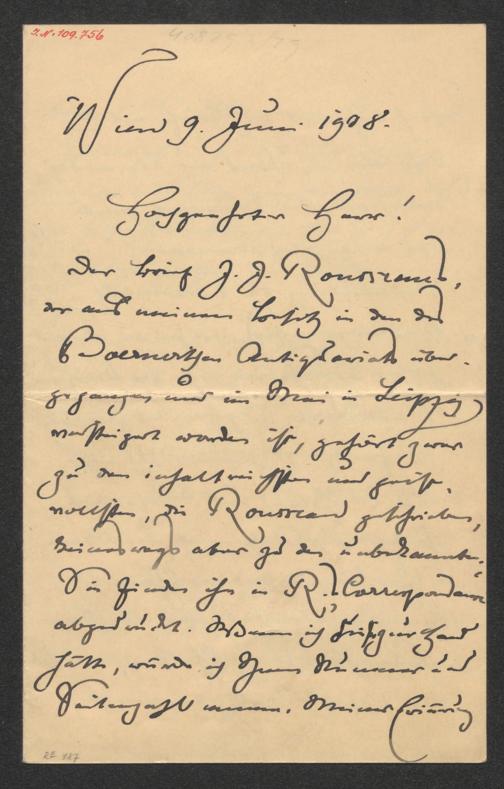 I.N. 109.756
Wien 9. Juni 1908.
Hochgeehrter Herr!
Der Brief J. J. Rousseaus,
der aus meinem Besitz in den des
Boerner'schen Antiquariats über-
gegangen und im Mai in Leipzig
versteigert worden ist, gehört zwar
zu den inhaltreichsten und
vollsten, die Rousseau geschrieben,
keineswegs aber zu den unbekannten.
Sie finden ihn in R.'s Correspondance
abgedruckt. Wenn ich
hätte, würde ich Ihnen Nummer und
Seitenzahl nennen. Meiner Erinnrung